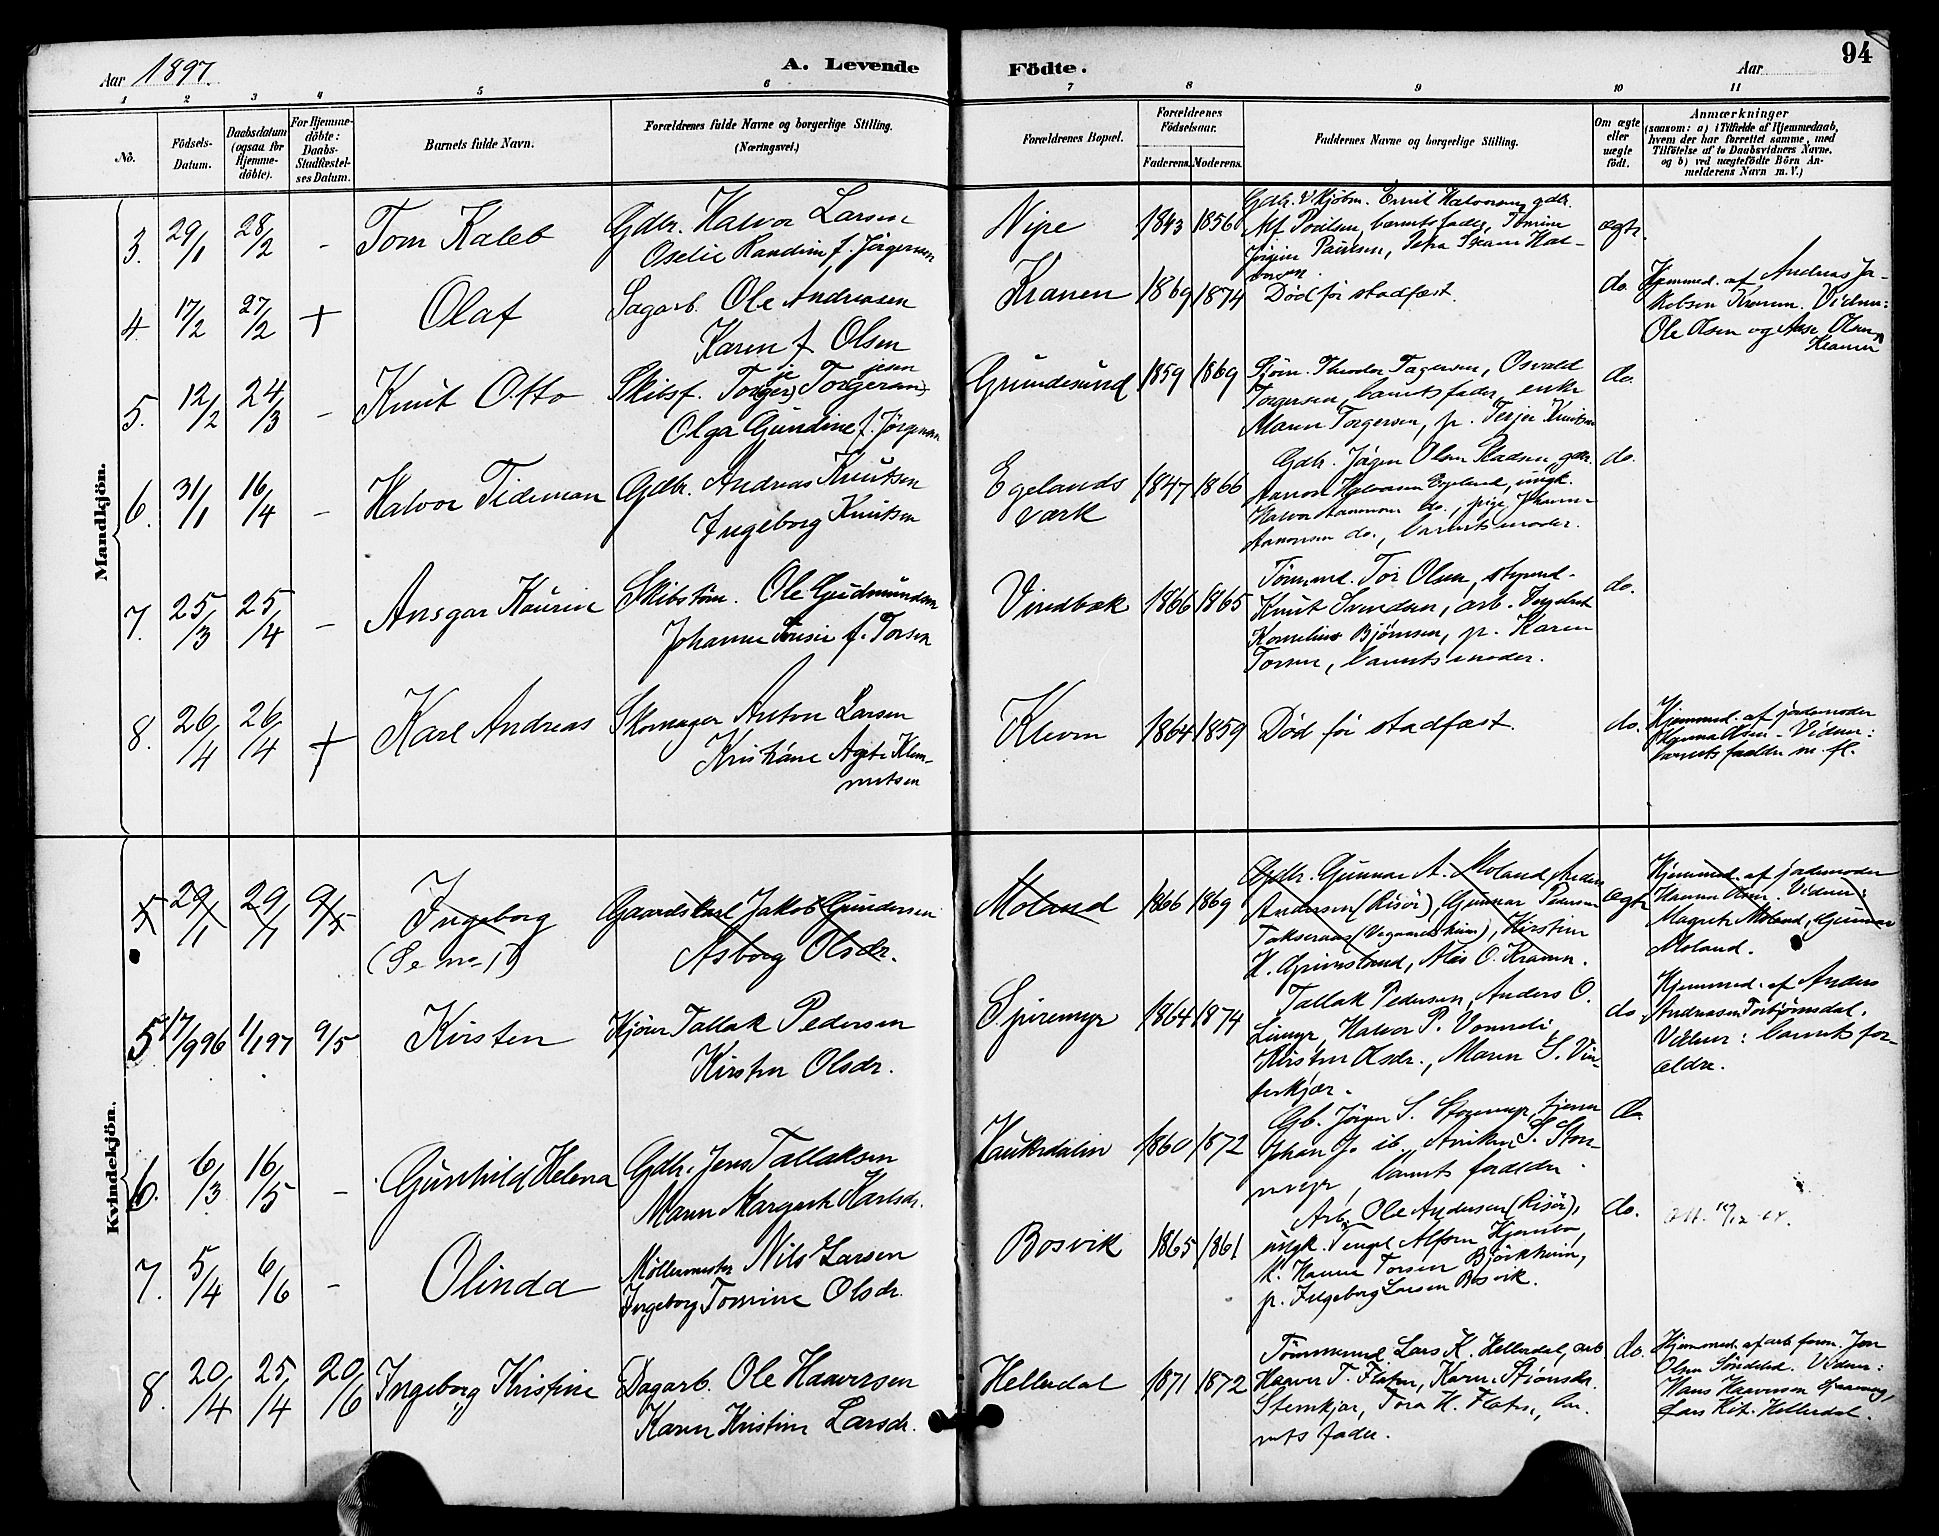 Aar 1897.
A. Levende Födte.
Aar
94
1 2 3 4 5 6 7 8 9 10 11
No.
Födsels-Datum.
Daabsdatum (ogsaa for Hjemme-döbte).
For Hjemme-döbte: Daabs-Stadfæstel-ses Datum.
Barnets fulde Navn.
Forældrenes fulde Navne og borgerlige Stilling.
(Næringsvei.)
Forældrenes Bopæl.
Forældrenes Födselsaar.
Faderens. Moderens.
Faddernes Navne og borgerlige Stilling.
Om ægte eller uægte født.
Anmærkninger
(saasom: a) i Tilfælde af Hjemmedaab,
hvem der har forrettet samme, med
Tilföielse af to Daabsvidners Navne,
og b) ved uægtefödte Börn An-
melderens Navn m. V.)
Mandkjön.
3. 29/1 28/2 - Tom Kaleb
Gdbr. Halvor Larsen
Oselie Randine f. Jörgensen
Nipe 1843 1856
Gdbr. Emil Halvorsen, gdbr.
Alf Poulsen, barnets fader, Tomine
Jörgine Paulsen, Petra Hal-
vorsen.
ægte.
4. 17/2 27/2 + Olaf
Sagarb. Ole Andreasen
Karen f. Olsen
Kranen 1869 1874
Död før stadfæst.
do.
Hjemmed. af Andreas Ja-
kobsen Kranen. Vidner:
Ole Olsen og Aase Olsen
Kranen
5. 12/2 24/3 - Knut Otto
Skibsf. Torger Torgersen
Olga Gundine f. Jörgensen
Grundesund 1859 1869
Sjöm. Theodor Tagesen, Osvald
Torgersen, barnets fader, enke
Maren Torgersen, p. Terjer Knutsen
do.
6. 31/1 16/4 - Halvor Tideman
Gdbr. Andreas Knutsen
Ingeborg Knutsen
Egelands værk 1847 1866
Gdbr. Jögen Olsen Pladsen, gdbr.
Aanon Halvorsen Egeland, ungk.
Halvor Aanonsen do., pige Johanne
Aanonsen do., barnets moder.
do.
7. 25/3 25/4 - Ansgar Kaurin
Skibstöm. Ole Gudmundsen
Johanne Lovise f. Torsen
Vindbæk 1866 1865
Tömmerm. Tor Olsen, styrmd.
Knut Svendsen, arb. Engebret
Kornelius Bjørnsen, p. Karen
Torsen, barnets moder.
do.
8. 26/4 26/4 + Karl Andreas
Skomager Anton Larsen
Kristiane Agte Klem-
metsen
Kleven 1864 1859
Död før stadfæst.
do.
Hjemmed. af jordemoder
Hanna Olsen - Vidner:
barnets forældre m. fl.
Kvindekjön.
5 29/1 29/1 9/5 Ingeborg
(Se no 1)
Gaardskarl Jakob Gundersen
Asborg Olsdr.
Moland 1866 1869
Gdbr. Gunnar A. Moland, Anders
Andersen (Risör), Gunnar Pedersen
Takseraas (Vegaardsheien), Kirstine
K. Grimsland, Alis O. Kranen.
ægte
Hjemmed. af jordemoder
Hanna Olsen. Vidner:
Magrete Moland, Gunnar
Moland.
5 17/9 96 1/1 97 9/5 Kirsten
Kjörer Tallak Pedersen
Kirsten Olsdr.
Spiremyr 1864 1874
Tallak Pedersen, Anders O.
Limyr, Halvor P. Vonneli,
Kirsten Olsdr., Maren S. Vin-
terkjær.
do
Hjemmed. af Anders
Andreasen Torbjörnsdal.
Vidner: barnets for-
ældre.
6. 6/3 16/5 - Gunhild Helena
Gdbr. Jens Tallaksen
Maren Margrete Karlsdr.
Haukedalen 1860 1872
Gb. Jörgen S. Stegemyr, tjener
Johan J. ib. Anniken S. Ste-
myr, barnets forældre.
do.
7. 5/4 6/6 - Olinda
Møllermester Nils Larsen
Ingeborg Tomine Olsdr.
Bosvik 1865 1861
Arb. Ole Andersen (Risör),
ungk. Tengel Alfsen Hjembo,
k. Hanne Torsen Bjørkheim,
p. Ingeborg Larsen Bosvik.
do.
8. 20/4 25/4 20/6 Ingeborg Kristine
Dagarb. Ole Haaversen
Karen Kristine Larsdr.
Helledal 1871 1872
Tömmermd Lars K. Helledal, arb
Haaver T. Flaten, Karen Stiansdr.
Stenkjær, Tora H. Flaten, bar-
nets fader.
do.
Hjemmed. af arb. form. Jon
Olsen Söndeled. Vidner:
Hans Haaversen
Lars Kit. Helledal.